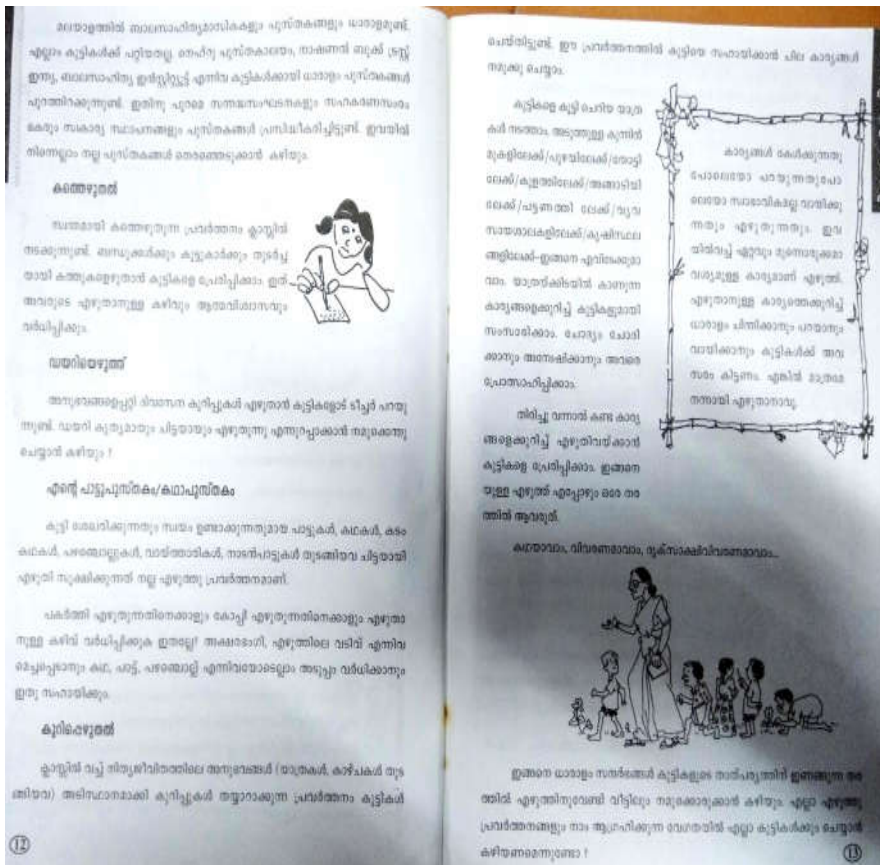 മലയാളത്തിൽ ബാലസാഹിത്യമാസികകളും പുസ്തകങ്ങളും ധാരാളമുണ്ട്.
എല്ലാം കുട്ടികൾക്ക് പറ്റിയതല്ല. നെഹ്റു പുസ്തകാലയം, നാഷണൽ ബുക്ക് ട്രസ്റ്റ്
ഇന്ത്യ, ബാലസാഹിത്യ ഇൻസ്റ്റിറ്റ്യൂട്ട് എന്നിവ കുട്ടികൾക്കായി ധാരാളം പുസ്തകങ്ങൾ
പുറത്തിറക്കുന്നുണ്ട്. ഇതിനു പുറമെ സന്നദ്ധസംഘടനകളും സഹകരണസംഘ
ങ്ങളും സ്വകാര്യ സ്ഥാപനങ്ങളും പുസ്തകങ്ങൾ പ്രസിദ്ധീകരിച്ചിട്ടുണ്ട്. ഇവയിൽ
നിന്നെല്ലാം നല്ല പുസ്തകങ്ങൾ തെരഞ്ഞെടുക്കാൻ കഴിയും.
കത്തെഴുതൽ
സ്വന്തമായി കത്തെഴുതുന്ന പ്രവർത്തനം ക്ലാസ്സിൽ
നടക്കുന്നുണ്ട്. ബന്ധുക്കൾക്കും കൂട്ടുകാർക്കും തുടർച്ച
യായി കത്തുകളെഴുതാൻ കുട്ടികളെ പ്രേരിപ്പിക്കാം. ഇത്
അവരുടെ എഴുതാനുള്ള കഴിവും ആത്മവിശ്വാസവും
വർധിപ്പിക്കും.
ഡയറിയെഴുത്ത്
അനുഭവങ്ങളെപ്പറ്റി ദിവസേന കുറിപ്പുകൾ എഴുതാൻ കുട്ടികളോട് ടീച്ചർ പറയു
ന്നുണ്ട്. ഡയറി കൃത്യമായും ചിട്ടയായും എഴുതുന്നു എന്നുറപ്പാക്കാൻ നമുക്കെന്തു
ചെയ്യാൻ കഴിയും !
എന്റെ പാട്ടുപുസ്തകം/കഥാപുസ്തകം
കുട്ടി ശേഖരിക്കുന്നതും സ്വയം ഉണ്ടാക്കുന്നതുമായ പാട്ടുകൾ, കഥകൾ, കടം
കഥകൾ, പഴഞ്ചൊല്ലുകൾ, വായ്ത്താരികൾ, നാടൻപാട്ടുകൾ തുടങ്ങിയവ ചിട്ടയായി
എഴുതി സൂക്ഷിക്കുന്നത് നല്ല എഴുത്തു പ്രവർത്തനമാണ്.
പകർത്തി എഴുതുന്നതിനെക്കാളും കോപ്പി എഴുതുന്നതിനെക്കാളും എഴുതാ
നുള്ള കഴിവ് വർധിപ്പിക്കുക ഇതല്ലേ? അക്ഷരഭംഗി, എഴുത്തിലെ വടിവ് എന്നിവ
മെച്ചപ്പെടാനും കഥ, പാട്ട്, പഴഞ്ചൊല്ല് എന്നിവയോടെല്ലാം അടുപ്പം വർധിക്കാനും
ഇതു സഹായിക്കും.
കുറിപ്പെഴുതൽ
ക്ലാസ്സിൽ വച്ച് നിത്യജീവിതത്തിലെ അനുഭവങ്ങൾ (യാത്രകൾ, കാഴ്ചകൾ തുട
ങ്ങിയവ) അടിസ്ഥാനമാക്കി കുറിപ്പുകൾ തയ്യാറാക്കുന്ന പ്രവർത്തനം കുട്ടികൾ
12
ചെയ്തിട്ടുണ്ട്. ഈ പ്രവർത്തനത്തിൽ കുട്ടിയെ സഹായിക്കാൻ ചില കാര്യങ്ങൾ
നമുക്കു ചെയ്യാം.
കുട്ടികളെ കൂട്ടി ചെറിയ യാത്ര
കൾ നടത്താം. അടുത്തുള്ള കുന്നിൻ
മുകളിലേക്ക്/പുഴയിലേക്ക്/തോട്ടി
ലേക്ക്/കുളത്തിലേക്ക്/അങ്ങാടിയി
ലേക്ക്/പട്ടണത്തി ലേക്ക്/വ്യവ
സായശാലകളിലേക്ക്/കൃഷിസ്ഥല
ങ്ങളിലേക്ക്-ഇങ്ങനെ എവിടേക്കുമാ
വാം. യാത്രയ്ക്കിടയിൽ കാണുന്ന
കാര്യങ്ങളെക്കുറിച്ച് കുട്ടികളുമായി
സംസാരിക്കാം. ചോദ്യം ചോദി
ക്കാനും അന്വേഷിക്കാനും അവരെ
പ്രോത്സാഹിപ്പിക്കാം.
തിരിച്ചു വന്നാൽ കണ്ട കാര്യ
ങ്ങളെക്കുറിച്ച് എഴുതിവയ്ക്കാൻ
കുട്ടികളെ പ്രേരിപ്പിക്കാം. ഇങ്ങനെ
യുള്ള എഴുത്ത് എപ്പോഴും ഒരേ തര
ത്തിൽ ആവരുത്.
കാര്യങ്ങൾ കേൾക്കുന്നതു
പോലെയോ പറയുന്നതുപോ
ലെയോ സ്വാഭാവികമല്ല വായിക്കു
ന്നതും എഴുതുന്നതും. ഇവ
യിൽവച്ച് ഏറ്റവും മുന്നൊരുക്കമാ
വശ്യമുള്ള കാര്യമാണ് എഴുത്ത്.
എഴുതാനുള്ള കാര്യത്തെക്കുറിച്ച്
ധാരാളം ചിന്തിക്കാനും പറയാനും
വായിക്കാനും കുട്ടികൾക്ക് അവ
സരം കിട്ടണം. എങ്കിൽ മാത്രമേ
നന്നായി എഴുതാനാവൂ.
കഥയാവാം, വിവരണമാവാം, ദൃക്സാക്ഷിവിവരണമാവാം...
ഇങ്ങനെ ധാരാളം സന്ദർഭങ്ങൾ കുട്ടികളുടെ താത്പര്യത്തിന് ഇണങ്ങുന്ന തര
ത്തിൽ എഴുത്തിനുവേണ്ടി വീട്ടിലും നമുക്കൊരുക്കാൻ കഴിയും. എല്ലാ എഴുത്തു
പ്രവർത്തനങ്ങളും നാം ആഗ്രഹിക്കുന്ന വേഗതയിൽ എല്ലാ കുട്ടികൾക്കും ചെയ്യാൻ
കഴിയണമെന്നുണ്ടോ !
13